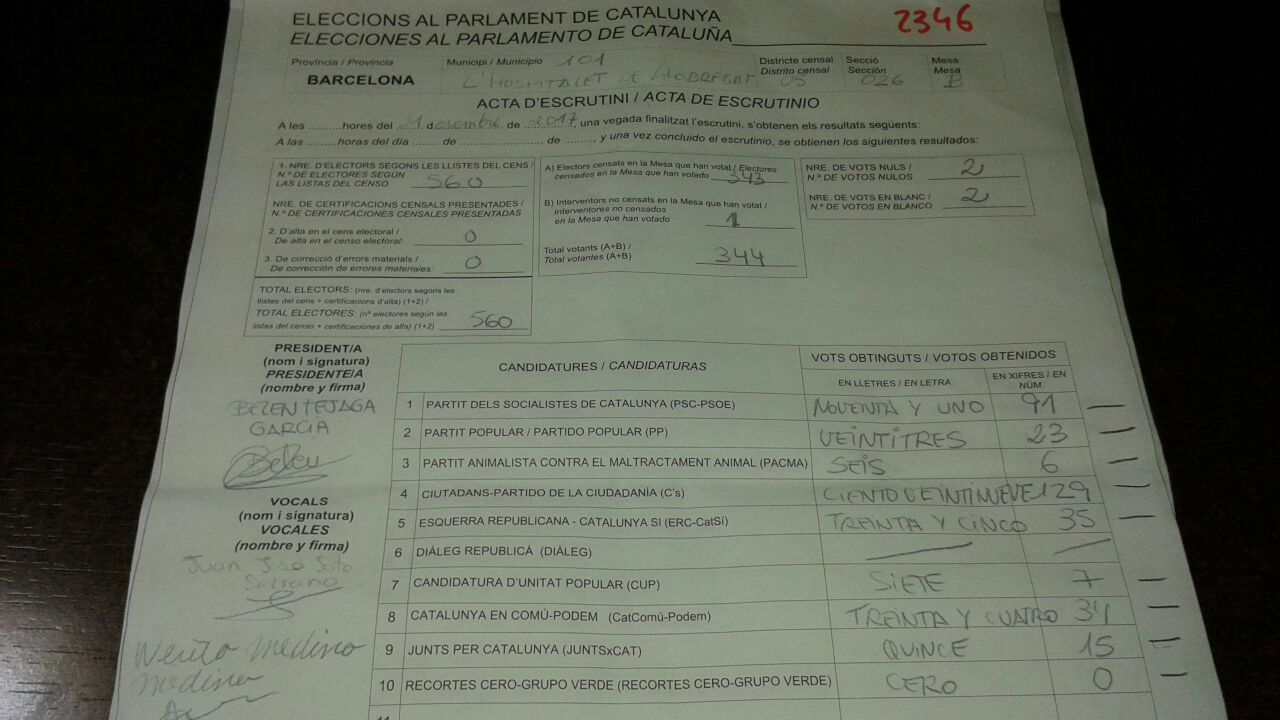 ELECCIONS AL PARLAMENT DE CATALUNYA
ELECCIONES AL PARLAMENTO DE CATALUÑA
2346
Província / Provincia
BARCELONA
Municipi / Municipio 101
L'HOSPITALET DE LLOBREGAT
Districte censal
Distrito censal
05
Secció
Sección
026
Mesa
Mesa
B
ACTA D'ESCRUTINI / ACTA DE ESCRUTINIO
A les ..........hores del 21 desembre de 2017 una vegada finalitzat l'escrutini, s'obtenen els resultats següents:
A las ..........horas del día ....... de ................ de ........., y una vez concluido el escrutinio, se obtienen los siguientes resultados:
1. NRE. D'ELECTORS SEGONS LES LLISTES DEL CENS /
N.º DE ELECTORES SEGÚN
LAS LISTAS DEL CENSO 560
NRE. DE CERTIFICACIONS CENSALS PRESENTADES /
N.º DE CERTIFICACIONES CENSALES PRESENTADAS
2. D'alta en el cens electoral /
De alta en el censo electoral: 0
3. De correcció d'errors materials /
De corrección de errores materiales: 0
TOTAL ELECTORS: (nre. d'electors segons les
llistes del cens + certificacions d'alta) (1+2) /
TOTAL ELECTORES: (nº electores según las
listas del censo + certificaciones de alta) (1+2) 560
A) Electors censats en la Mesa que han votat / Electores
censados en la Mesa que han votado 343
B) Interventors no censats en la Mesa que han votat /
Interventores no censados
en la Mesa que han votado 1
Total votants (A+B) /
Total votantes (A+B) 344
NRE. DE VOTS NULS /
N.º DE VOTOS NULOS 2
NRE. DE VOTS EN BLANC /
N.º DE VOTOS EN BLANCO 2
PRESIDENT/A
(nom i signatura)
PRESIDENTE/A
(nombre y firma)
BELEN TEJAGA
GARCIA
Belen
VOCALS
(nom i signatura)
VOCALES
(nombre y firma)
Juan Jso Soto
Serrano
Medina
Medina
CANDIDATURES / CANDIDATURAS
VOTS OBTINGUTS / VOTOS OBTENIDOS
EN LLETRES / EN LETRA
EN XIFRES / EN
NÚM.
1 PARTIT DELS SOCIALISTES DE CATALUNYA (PSC-PSOE) NOVENTA Y UNO 91 —
2 PARTIT POPULAR / PARTIDO POPULAR (PP) VEINTITRES 23 —
3 PARTIT ANIMALISTA CONTRA EL MALTRACTAMENT ANIMAL (PACMA) SEIS 6 —
4 CIUTADANS-PARTIDO DE LA CIUDADANÍA (C's) CIENTO VEINTINUEVE 129 —
5 ESQUERRA REPUBLICANA - CATALUNYA SI (ERC-CatSí) TREINTA Y CINCO 35 —
6 DIÀLEG REPUBLICÀ (DIÀLEG) — —
7 CANDIDATURA D'UNITAT POPULAR (CUP) SIETE 7 —
8 CATALUNYA EN COMÚ-PODEM (CatComú-Podem) TREINTA Y CUATRO 34 —
9 JUNTS PER CATALUNYA (JUNTSxCAT) QUINCE 15 —
10 RECORTES CERO-GRUPO VERDE (RECORTES CERO-GRUPO VERDE) CERO 0 —
11